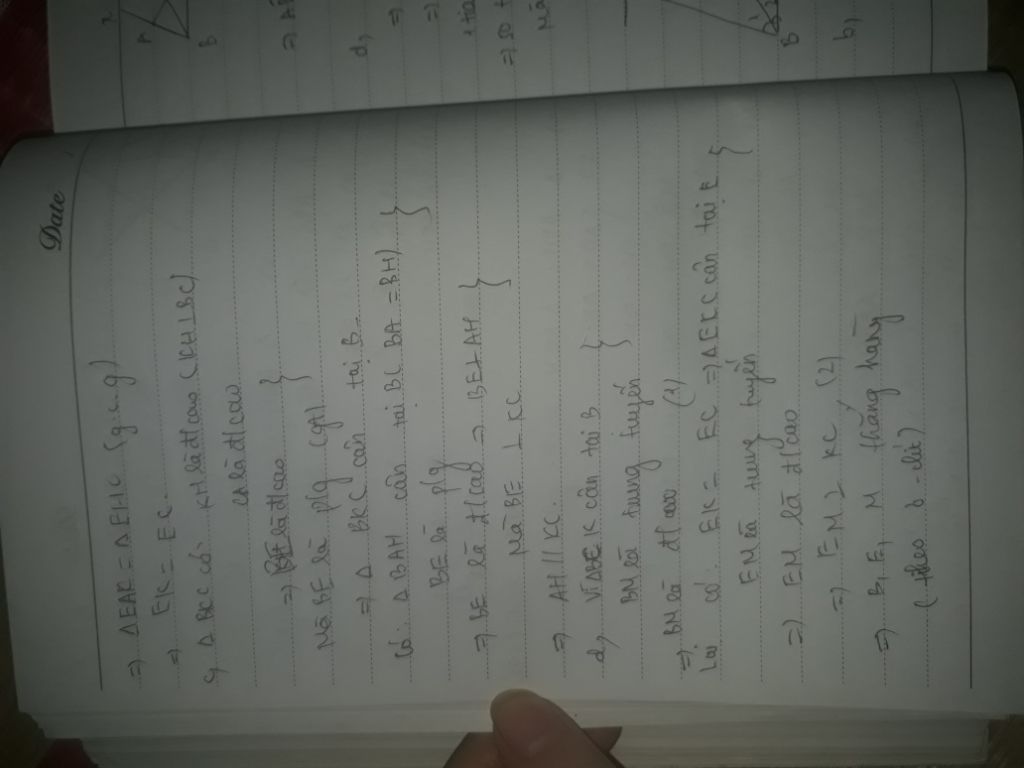 Date
=> ΔEAK = ΔEHC (g.c.g)
=> EK = EC.
c, Δ BKC có: KH là đ/cao (KH⊥BC)
CA là đ/cao
=> BE là đ/cao }
Mà BE là p/g (gt)
=> Δ BKC cân tại B
Có: Δ BAH cân tại B( BA = BH) }
BE là p/g
=> BE là đ/cao => BE ⊥ AH }
Mà BE ⊥ KC
=> AH // KC.
d, Vì K cân tại B }
BM là trung tuyến
=> BM là đ/cao (1)
Lại có: EK = EC => ΔEKC cân tại E }
EM là trung tuyến
=> EM là đ/cao
=> EM ⊥ KC (2)
=> B, E, M thẳng hàng
(theo ơ-clit)
A
B
=>
d,
=>
=>
=>
B
b,